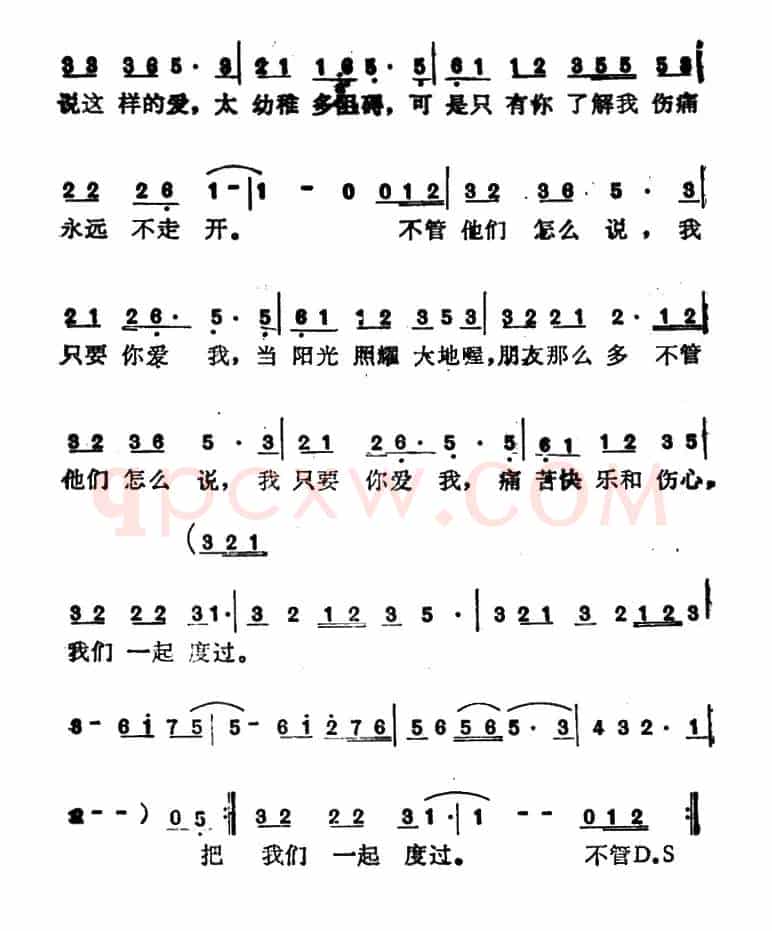 3 3 3 6 5 · 3 | 2 1 1 6 5 · 5 | 6 1 1 2 3 5 5 5 3 |
说这 样的爱，太 幼稚 多阻碍，可 是只 有你 了解我 伤痛
2 2 2 6 1 - | 1 - 0 0 1 2 | 3 2 3 6 5 · 3 |
永远 不走 开。 不管 他们 怎么 说，我
2 1 2 6 · 5 · 5 | 6 1 1 2 3 5 3 | 3 2 2 1 2 · 1 2 |
只要 你爱 我，当 阳光 照耀 大地喔，朋友那么多 不管
3 2 3 6 5 · 3 | 2 1 2 6 · 5 · 5 | 6 1 1 2 3 5 |
他们 怎么 说，我 只要 你爱 我，痛 苦快 乐和 伤心，
qpcxw.COM
( 3 2 1
3 2 2 2 3 1 · | 3 2 1 2 3 5 · | 3 2 1 3 2 1 2 3 |
我们 一起 度过。
3 - 6 i 7 5 | 5 - 6 i 2 7 6 | 5 6 5 6 5 · 3 | 4 3 2 · 1 |
2 - - ) 0 5 :|| 3 2 2 2 3 1 · | 1 - - 0 1 2 :||
把 我们 一起 度过。 不管D.S